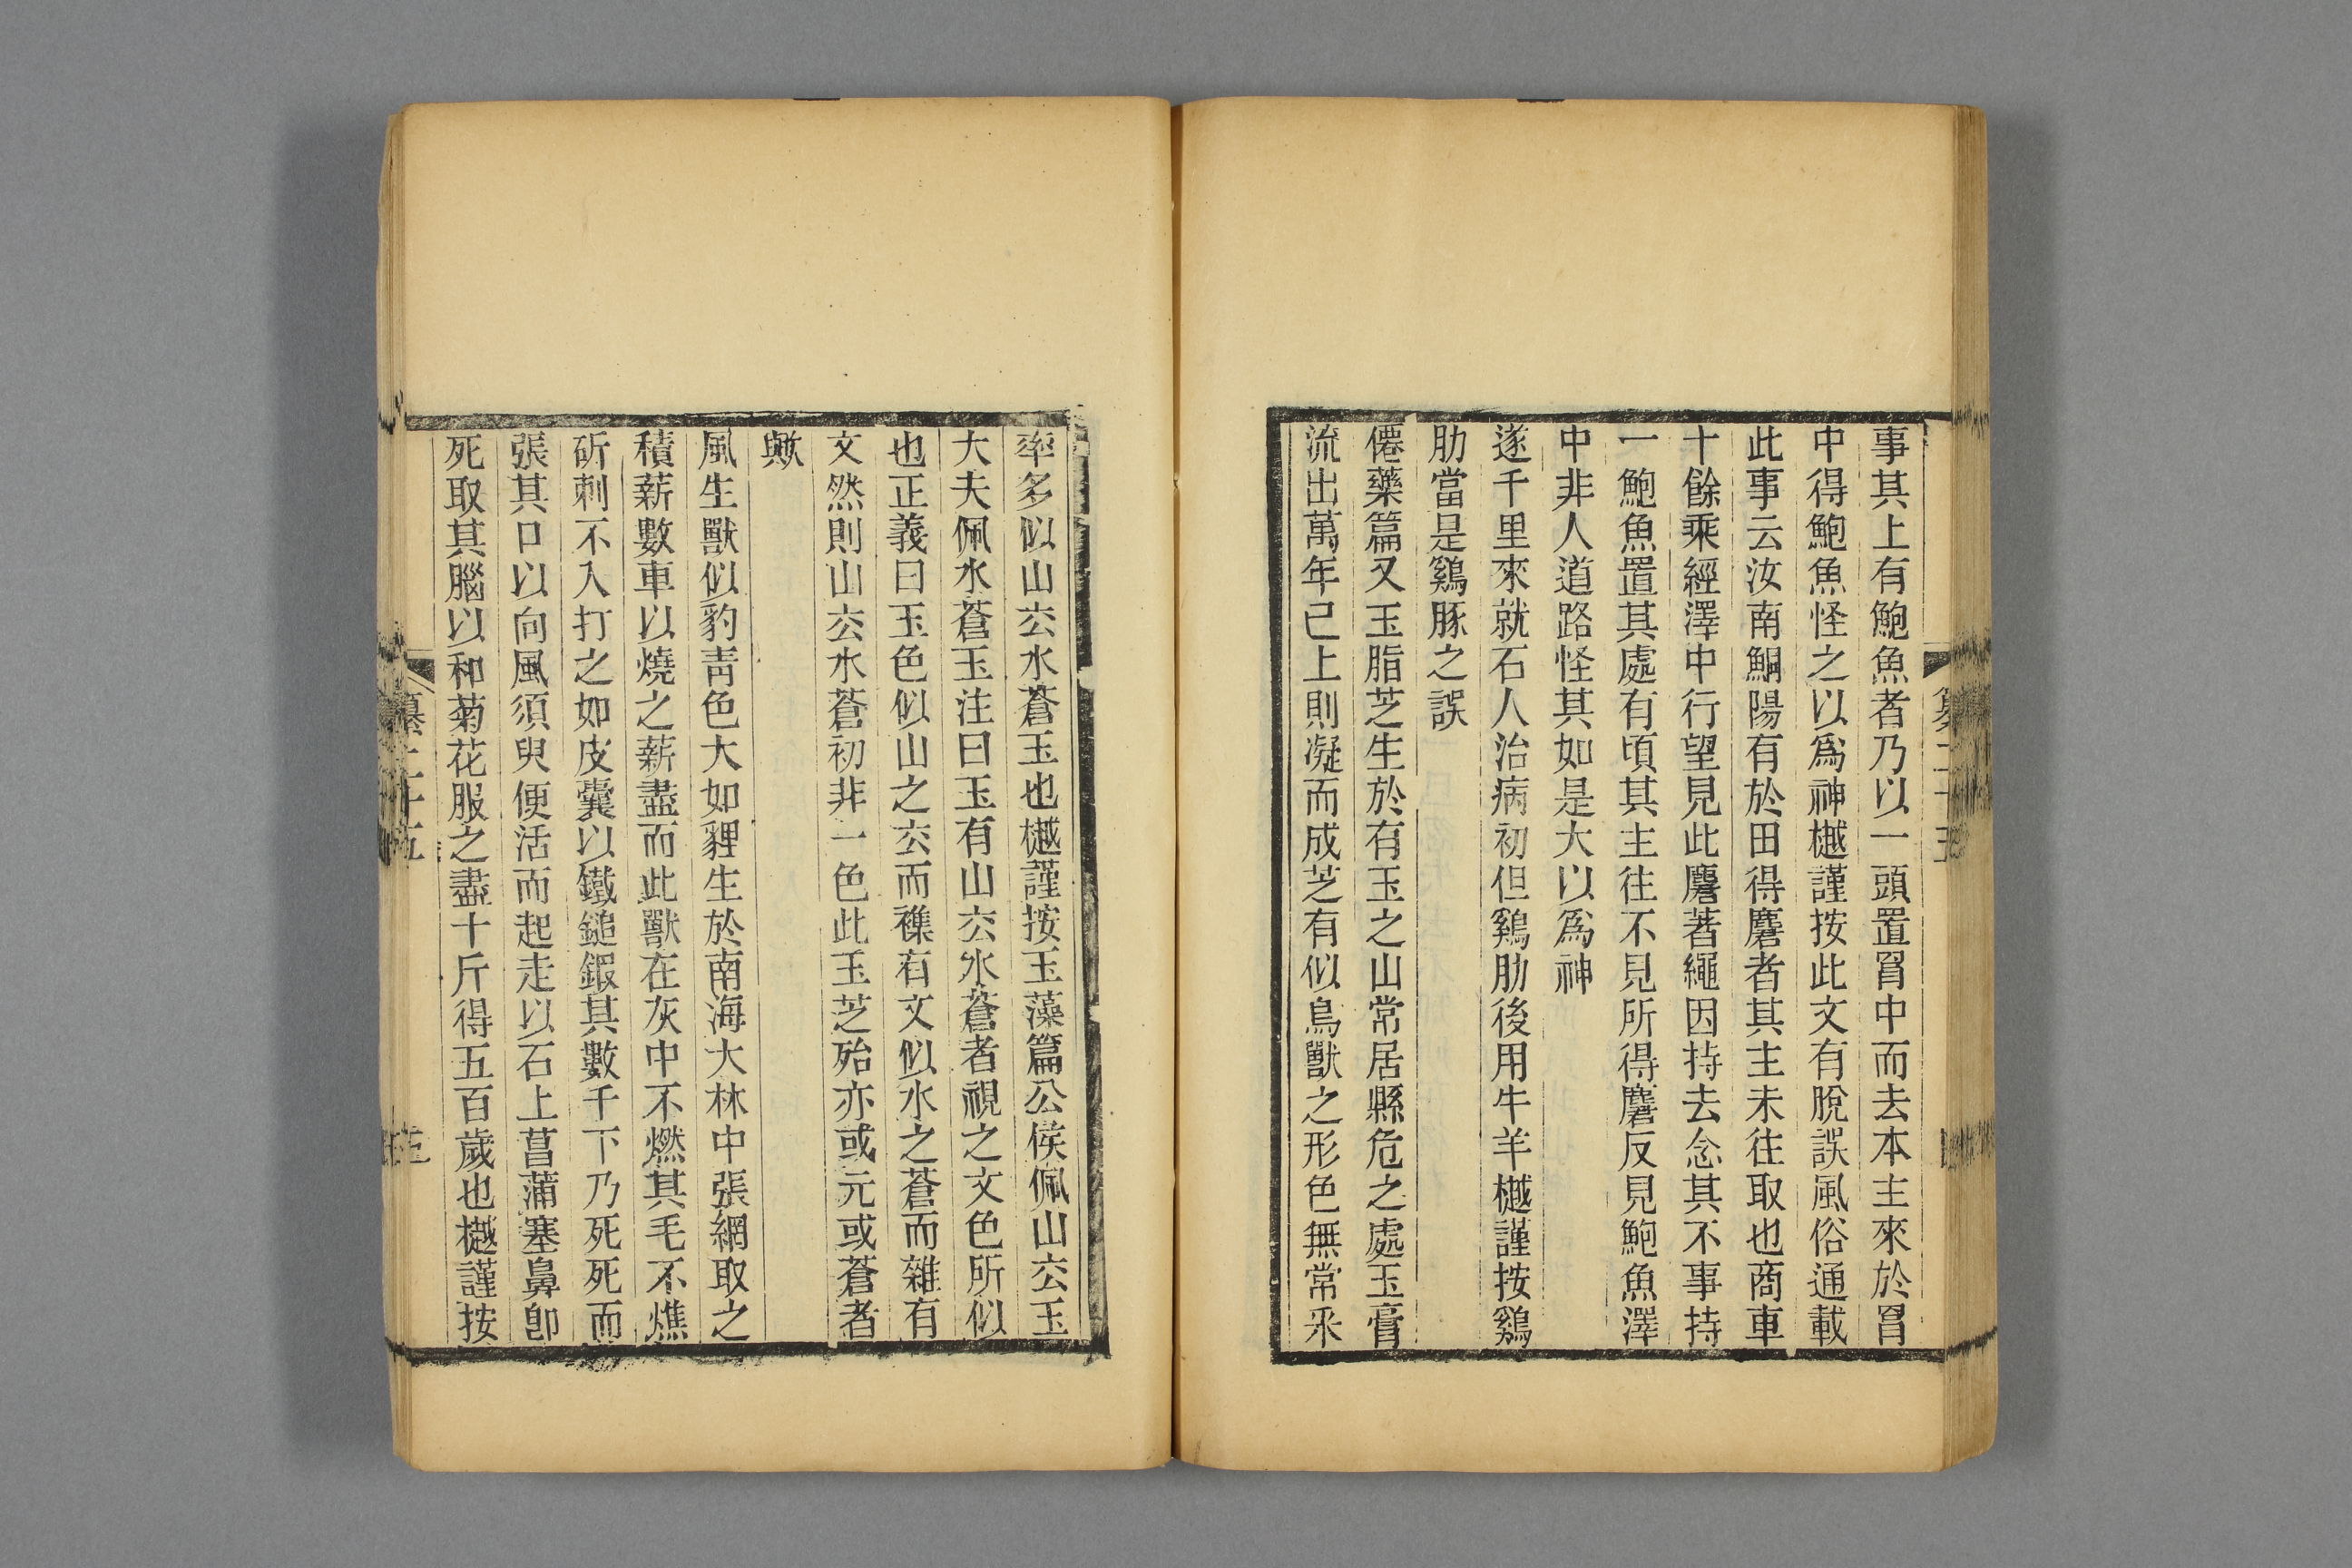 事其上有鮑魚者乃以一頭置罥中而去本主來於罥
中得鮑魚怪之以爲神樾謹按此文有脫誤風俗通載
此事云汝南鮦陽有於田得麏者其主未往取也商車
十餘乘經澤中行望見此麏著繩因持去念其不事持
一鮑魚置其處有頃其主往不見所得麏反見鮑魚澤
中非人道路怪其如是大以爲神
遂千里來就石人治病初但鷄肋後用牛羊樾謹按鷄
肋當是鷄豚之誤
僊藥篇又玉脂芝生於有玉之山常居縣危之處玉膏
流出萬年已上則凝而成芝有似鳥獸之形色無常采
率多似山玄水蒼玉也樾謹按玉藻篇公侯佩山玄玉
大夫佩水蒼玉注曰玉有山玄水蒼者視之文色所似
也正義曰玉色似山之玄而襍有文似水之蒼而雜有
文然則山玄水蒼初非一色此玉芝殆亦或元或蒼者
歟
風生獸似豹青色大如貍生於南海大林中張網取之
積薪數車以燒之薪盡而此獸在灰中不燃其毛不燋
斫刺不入打之如皮囊以鐵鎚鍜其數千下乃死死而
張其口以向風須臾便活而起走以石上菖蒲塞鼻卽
死取其腦以和菊花服之盡十斤得五百歲也樾謹按
纂二十五